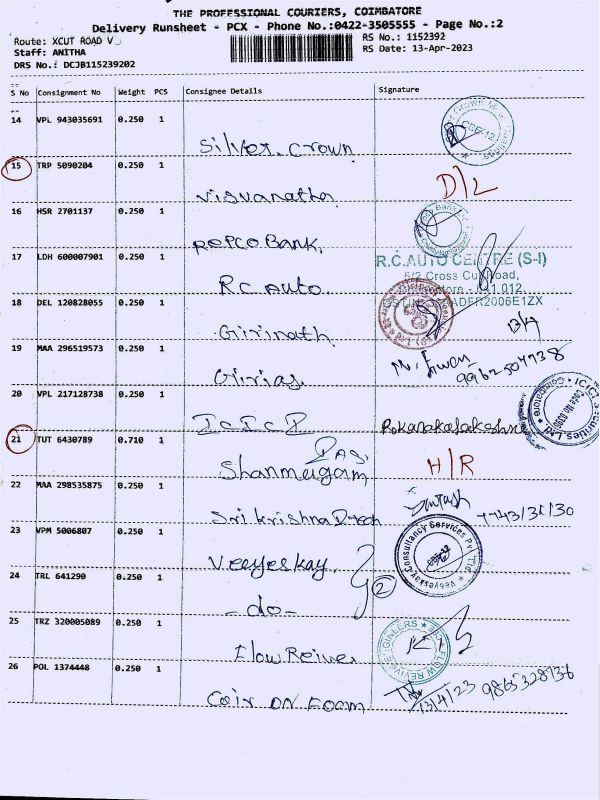 THE PROFESSIONAL COURIERS, COIMBATORE
Delivery Runsheet - PCX - Phone No.:0422-3505555 - Page No.:2
Route: XCUT ROAD V
RS No.: 1152392
Staff: ANITHA
RS Date: 13-Apr-2023
DRS No.: DCJB115239202
S No Consignment No Weight PCS Consignee Details Signature
14 VPL 943035691 0.250 1
Silver Crown
15 TRP 5090204 0.250 1
Visvanatha D/L
16 HSR 2701137 0.250 1
REPCO BANK.
17 LDH 600007901 0.250 1
R.C.AUTO CENTRE (S-I)
5/2 Cross Cut Road,
R.C Auto
18 DEL 120828055 0.250 1
Girinath
19 MAA 296519573 0.250 1
Girias
20 VPL 217128738 0.250 1
ICICI
21 TUT 6430789 0.710 1
Shanmugam H/R
22 MAA 298535875 0.250 1
Sri Krishna
23 VPM 5006807 0.250 1
Veeyeskay
Veeyeskay Consultancy Services Pvt Ltd
24 TRL 641290 0.250 1
2
-do-
25 TRZ 320005089 0.250 1
26 POL 1374448 0.250 1
Coir ON Foam
13/4/23 9865328736